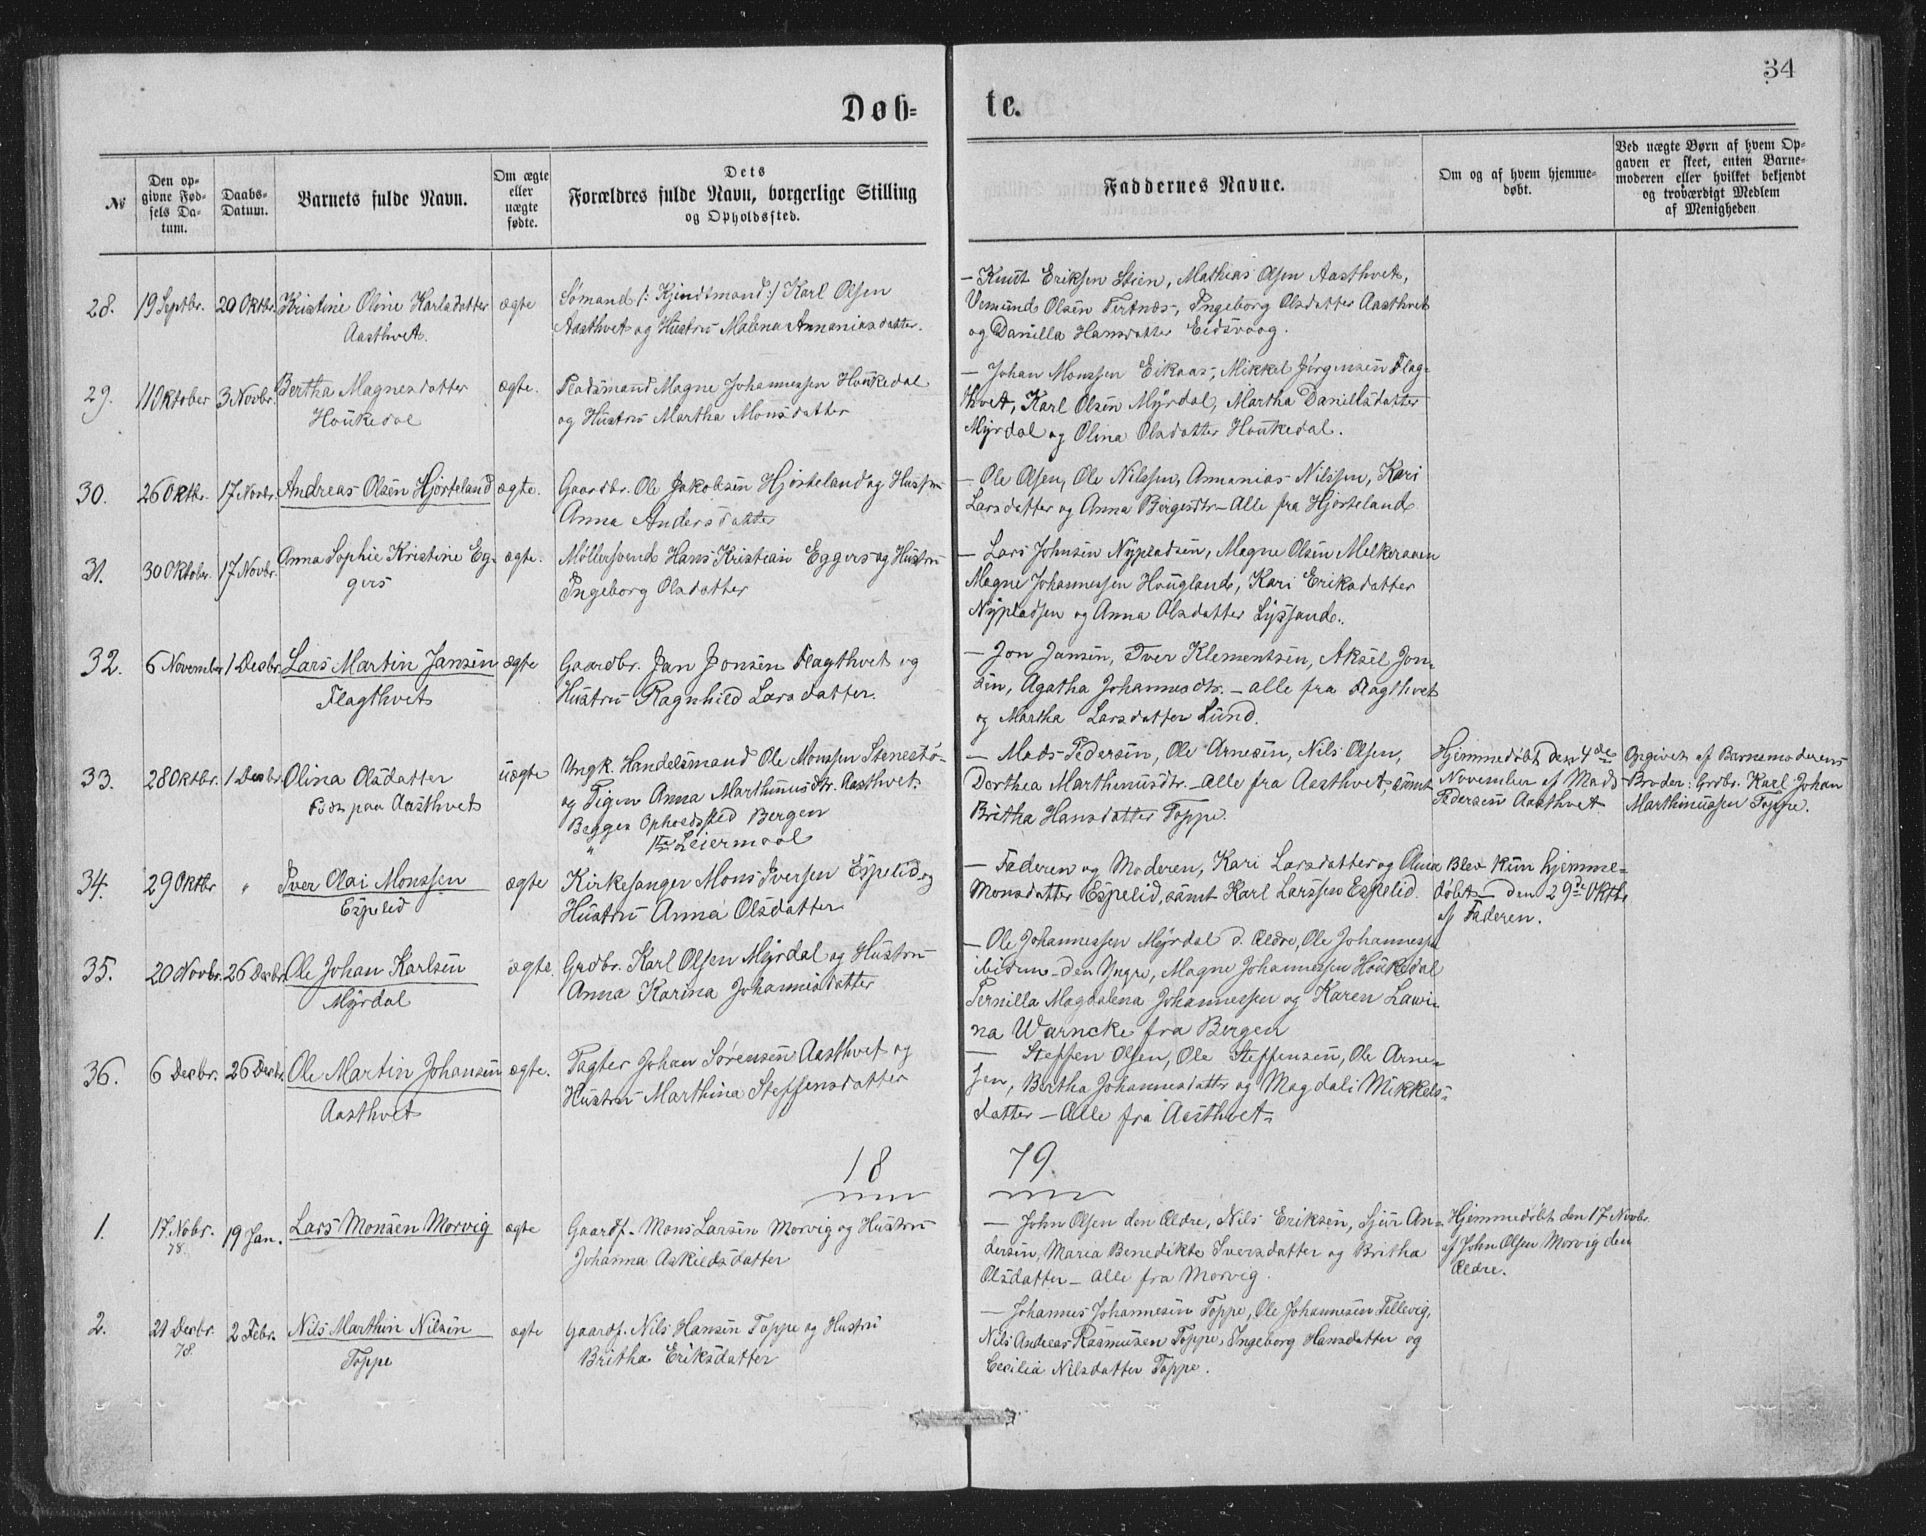 34
Døb= te.
№
Den opgivne Fødsels Datum.
Daabs-Datum.
Barnets fulde Navn.
Om ægte eller uægte fødte.
Dets Forældres fulde Navn, borgerlige Stilling og Opholdssted.
Faddernes Navne.
Om og af hvem hjemmedøbt.
Ved uægte Børn af hvem Opgaven er skeet, enten Barnemoderen eller hvilket bekjendt og troværdigt Medlem af Menigheden
28. 19 Septbr. 20 Oktbr. Kristine Oline Karlsdatter
Aasthvet.
ægte
Sømand /: Kjendtmand :/ Karl Olsen
Aasthvet og Hustru Malena Annaniasdatter.
— Knut Eriksen Stien, Mathias Olsen Aasthvet,
Vemund Olsen Tertnæs, Ingeborg Olsdatter Aasthvet
og Danilla Hansdatter Eidsvaag.
29. 11 Oktober 3 Novbr. Bertha Magnesdatter
Houkedal
ægte.
Pladsmand Magne Johannessen Houkedal
og Hustru Martha Monsdatter
— Johan Monssen Eikaas, Mikkel Jørgensen Flag-
thvet, Karl Olsen Myrdal, Martha Danielsdatter
Myrdal og Olina Olsdatter Houkedal.
30. 26 Oktbr. 17 Novbr. Andreas Olsen Hjorteland
ægte.
Gaardbr. Ole Jakobsen Hjorteland og Hustru
Anna Andersdatter
— Ole Olsen, Ole Nilssen, Annanias Nilssen, Kari
Larsdatter og Anna Børgesdtr. — Alle fra Hjorteland
31. 30 Oktober. 17 Novbr. Anna Sophie Kristine Eg-
gers
ægte.
Møllersvend Hans Kristian Eggers og Hustru
Ingeborg Olsdatter
— Lars Johnsen Nypladsen, Magne Olsen Melkeraaen
Magne Johannessen Hougland, Kari Eriksdatter
Nypladsen og Anna Olsdatter Lyssand.
32. 6 November 1 Decbr. Lars Martin Jansen
Flagthvet
ægte
Gaardbr. Jan Jonsen Flagthvet og
Hustru Ragnhild Larsdatter.
— Jon Jansen, Iver Klementsen, Aksel Jon-
sen, Agatha Johannesdtr. — alle fra Flagthvet
og Martha Larsdatter Lund.
33. 28 Oktbr. 1 Decbr. Olina Olsdatter
Født paa Aasthvet
uægte
Ungk. Handelsmand Ole Monssen Stenestø
og Pigen Anna Marthinusdtr. Aasthvet.
Begges Opholdssted Bergen
1ste Leiermaal
— Mads Pedersen, Ole Arnesen, Nils Olsen,
Dorthea Marthinusdtr. — alle fra Aasthvet, samt
Britha Hansdatter Toppe.
Hjemmedøbt den 4de
November af Mads
Pedersen Aasthvet.
Opgivet af Barnemoderens
Broder: Grdbr. Karl Johan
Marthinussen Toppe.
34. 29 Oktbr " Iver Olai Monssen
Espelid
ægte
Kirkesanger Mons Iversen Espelid og
Hustru Anna Olsdatter
— Faderen og Moderen, Kari Larsdatter og Olina
Monsdatter Espelid, samt Karl Larssen Espelid.
Blev kun hjemme-
døbt den 29de Oktbr
af Faderen.
35. 20 Novbr. 26 Decbr. Ole Johan Karlsen
Myrdal
ægte.
Grdbr. Karl Olsen Myrdal og Hustru
Anna Karina Johannisdatter
— Ole Johannessen Myrdal d. Ældre, Ole Johannessen
ibidem — den Yngre, Magne Johannessen Houkedal
Pernilla Magdalena Johannessen og Karen Lawi-
na Warncke fra Bergen
36. 6 Decbr. 26 Decbr. Ole Martin Johansen
Aasthvet
ægte.
Pagter Johan Sørensen Aasthvet og
Hustru Marthina Steffensdatter
— Steffen Olsen, Ole Steffensen, Ole Arne-
sen, Bertha Johannesdattr og Magdali Mikkels-
datter — Alle fra Aasthvet.
18 79.
1. 17 Nobr. 78. 19 Jan. Lars Monsen Morvig
ægte
Gaardf. Mons Larsen Morvig og Hustru
Johanna Askildsdatter
— John Olsen den Ældre, Nils Eriksen, Sjur An-
dersen, Maria Benedikte Iversdatter og Britha
Olsdatter — alle fra Morvig.
Hjemmedøbt den 17 Novbr.
af John Olsen Morvig den
Ældre.
2. 21 Decbr. 78. 2 Febr. Nils Marthin Nilsen
Toppe
ægte
Gaardf. Nils Hansen Toppe og Hustru
Britha Eriksdatter
— Johannes Johannesen Toppe, Ole Johannesen Tellevig,
Nils Andreas Rasmusen Toppe, Ingeborg Hansdatter og
Cecilia Nilsdatter Toppe.